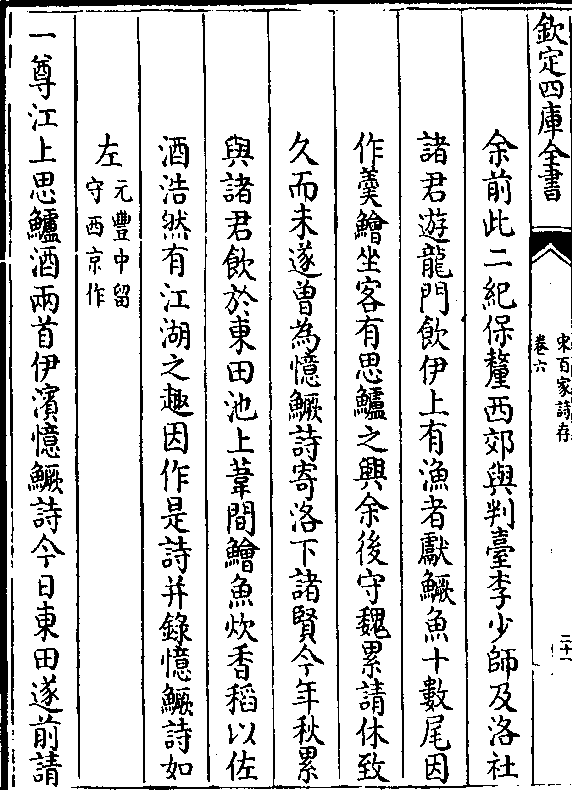 欽定四庫全書
宋百家詩存
卷六
二十一
余前此二紀保釐西郊與判臺李少師及洛社
諸君遊龍門飲伊上有漁者獻鱖魚十數尾因
作羹鱠坐客有思鱸之興余後守魏累請休致
久而未遂曾為憶鱖詩寄洛下諸賢今年秋累
與諸君飲於東田池上葦間鱠魚炊香稻以佐
酒浩然有江湖之趣因作是詩并錄憶鱖詩如
左元豐中留
守西京作
一尊江上思鱸酒兩首伊濱憶鱖詩今日東田遂前請